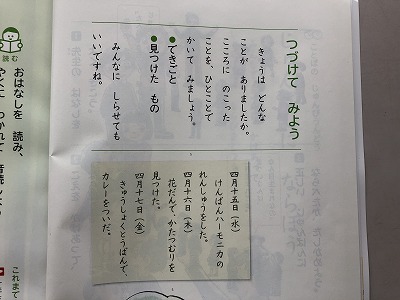 つづけて みよう
きょうは どんな
ことが ありましたか。
こころに のこった
ことを、ひとことで
かいて みましょう。
●できごと
●見つけた もの
みんなに しらせても
いいですね。
四月十五日(水)
けんばんハーモニカの
れんしゅうをした。
四月十六日(木)
花だんで、かたつむりを
見つけた。
四月十七日(金)
きゅうしょくとうばんで、
カレーをついだ。
読む
おはなしを 読み、
これまで